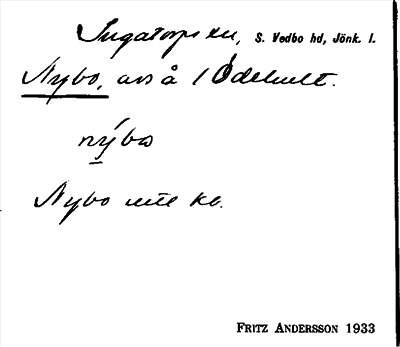 Ingatorps sn, S. Vedbo hd, Jönk. l.
Nybo, avs å 1 Ödehult.
nýbo
Nybo ute kb.
FRITZ ANDERSSON 1933